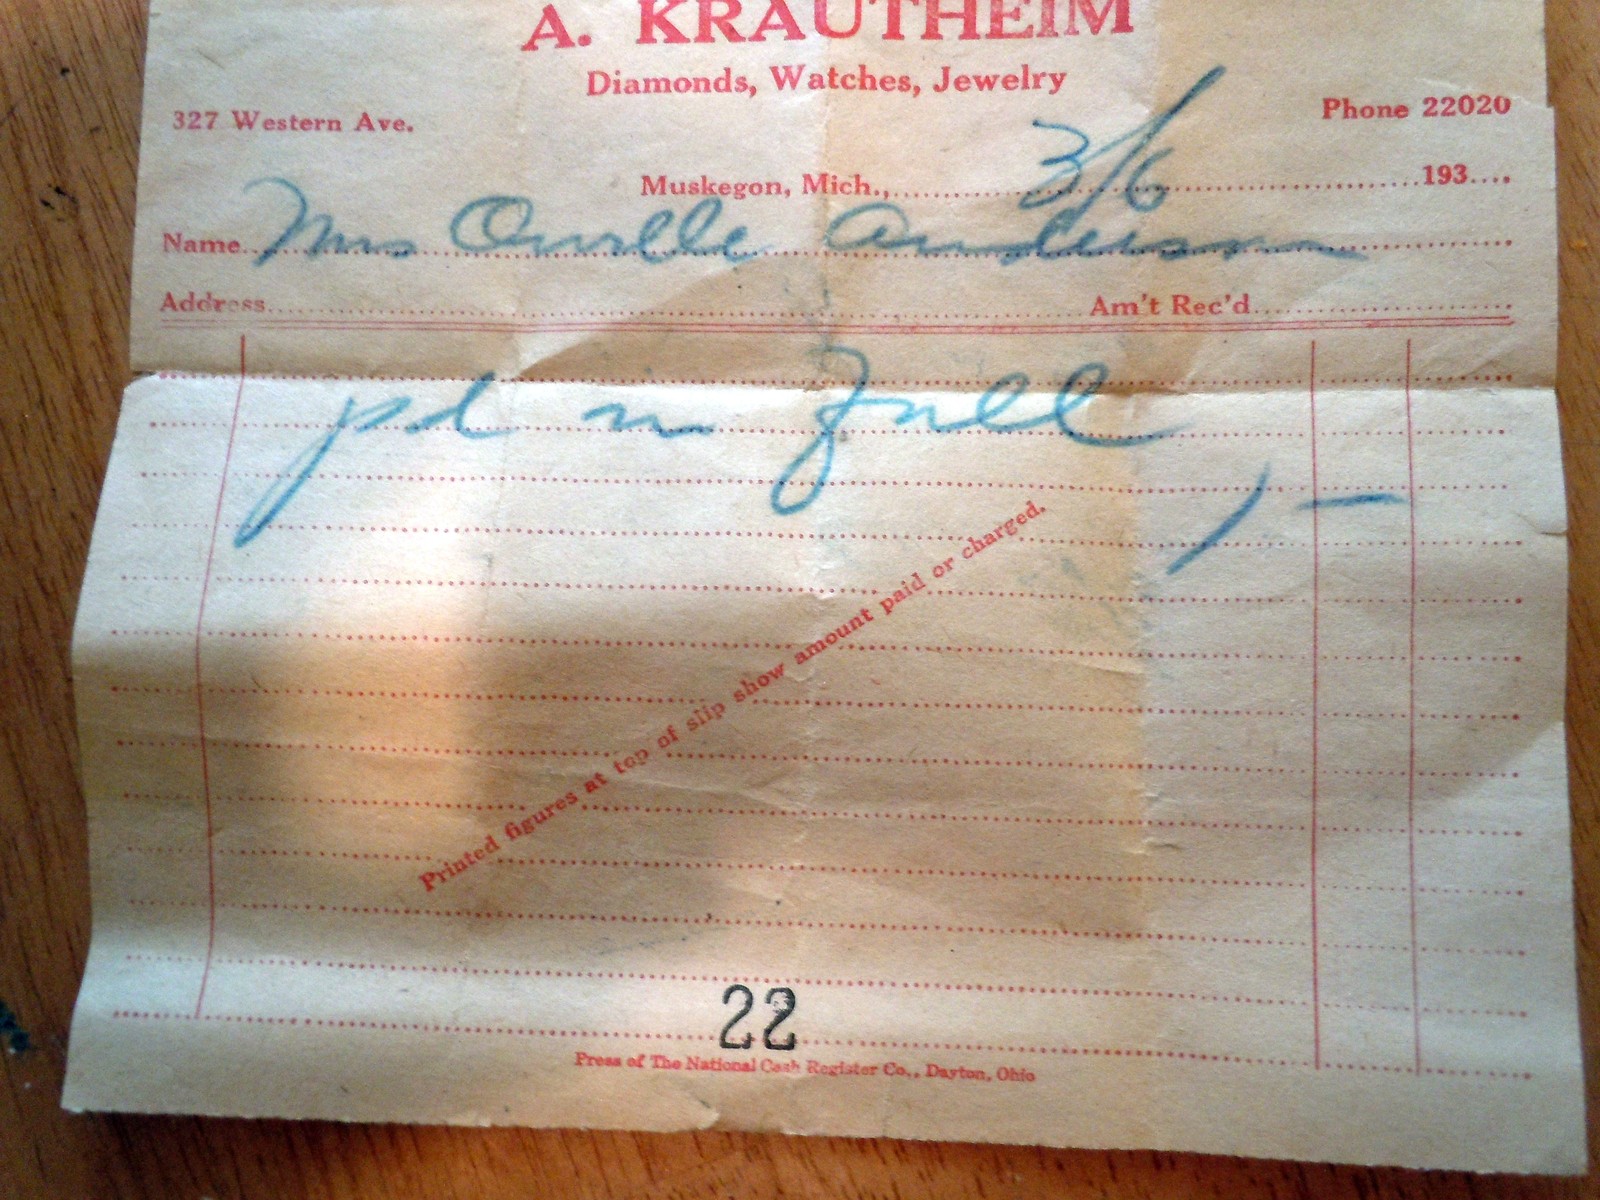 A. KRAUTHEIM
Diamonds, Watches, Jewelry
327 Western Ave. Phone 22020
Muskegon, Mich., 3/6 193
Name Mrs Orville Anderson
Address Am't Rec'd
pd in full
1 —
Printed figures at top of slip show amount paid or charged.
22
Press of The National Cash Register Co., Dayton, Ohio